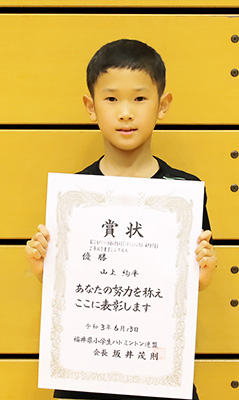 賞状
優勝
山上 絢平
あなたの努力を称え
ここに表彰します
令和3年6月13日
福井県小学生バドミントン連盟
会長 坂井茂則